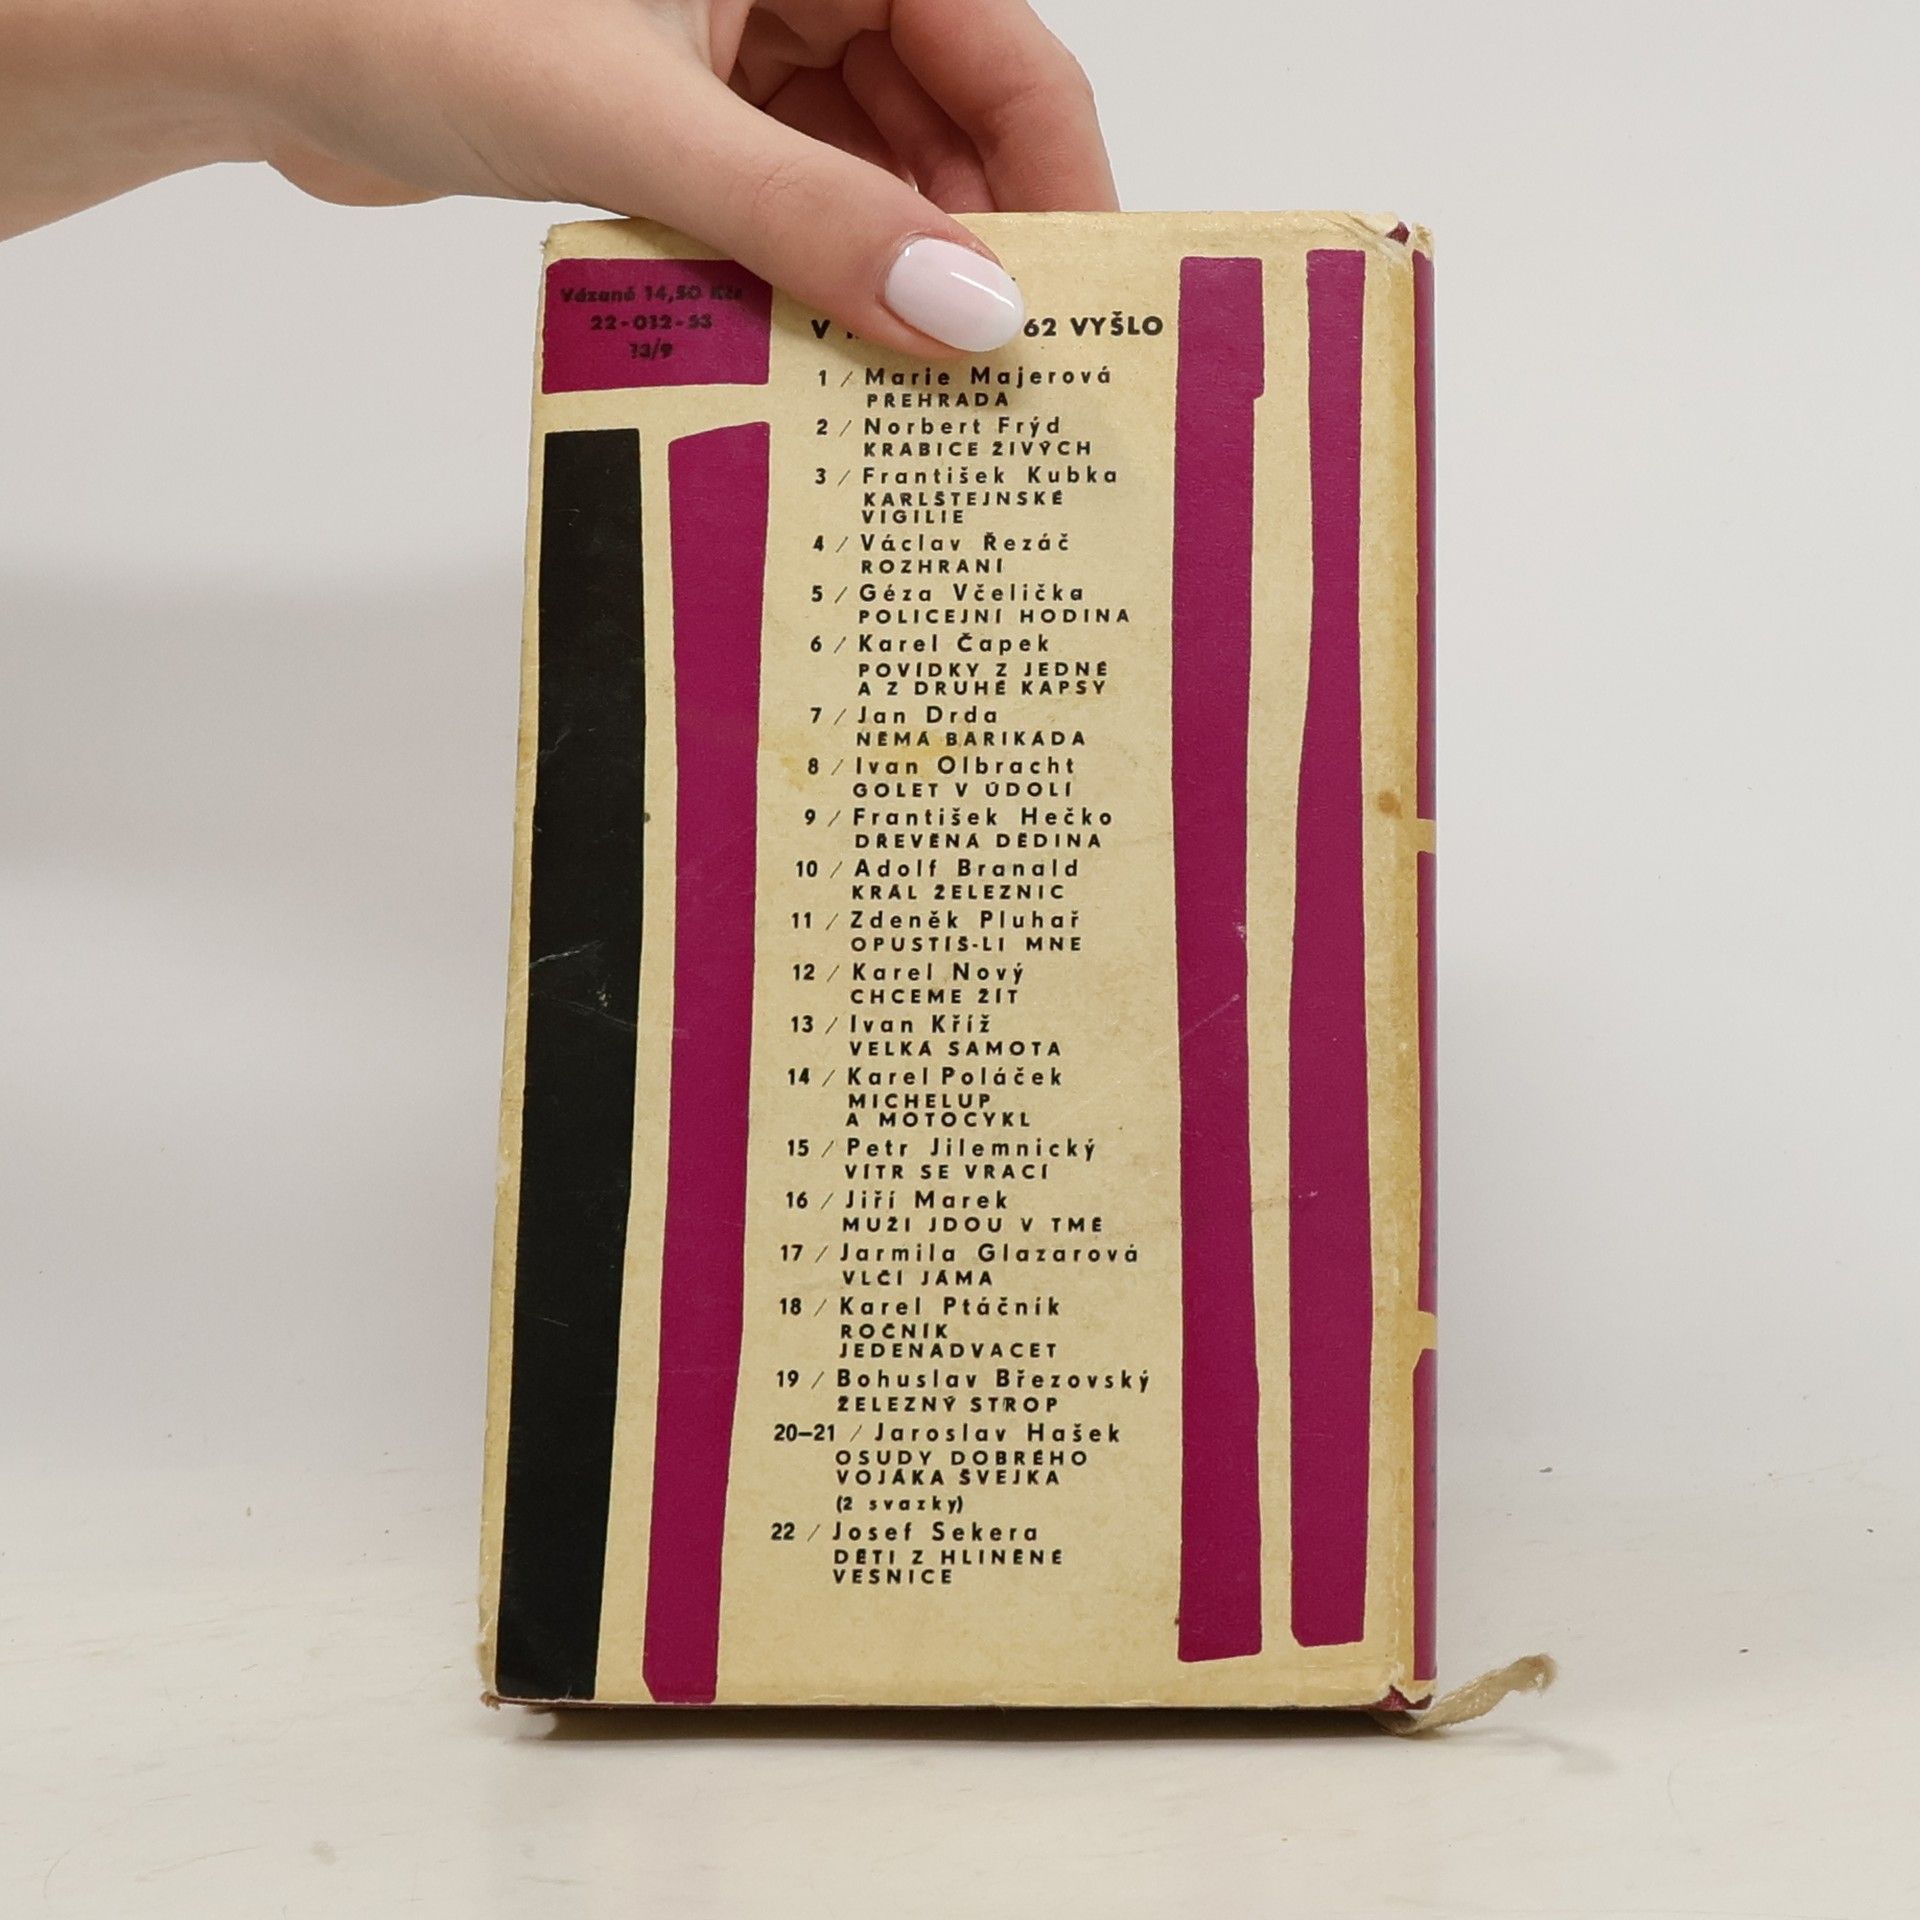 Vázané 14,50 Kčs
22-012-53
13/9
V 62 VYŠLO
1 / Marie Majerová
PŘEHRADA
2 / Norbert Frýd
KRABICE ŽIVÝCH
3 / František Kubka
KARLŠTEJNSKÉ
VIGILIE
4 / Václav Řezáč
ROZHRANÍ
5 / Géza Včelička
POLICEJNÍ HODINA
6 / Karel Čapek
POVÍDKY Z JEDNÉ
A Z DRUHÉ KAPSY
7 / Jan Drda
NĚMÁ BARIKÁDA
8 / Ivan Olbracht
GOLET V ÚDOLÍ
9 / František Hečko
DŘEVĚNÁ DĚDINA
10 / Adolf Branald
KRÁL ŽELEZNIC
11 / Zdeněk Pluhař
OPUSTÍŠ-LI MNE
12 / Karel Nový
CHCEME ŽÍT
13 / Ivan Kříž
VELKÁ SAMOTA
14 / Karel Poláček
MICHELUP
A MOTOCYKL
15 / Petr Jilemnický
VÍTR SE VRACÍ
16 / Jiří Marek
MUŽI JDOU V TMĚ
17 / Jarmila Glazarová
VLČÍ JÁMA
18 / Karel Ptáčník
ROČNÍK
JEDENADVACET
19 / Bohuslav Březovský
ŽELEZNÝ STROP
20–21 / Jaroslav Hašek
OSUDY DOBRÉHO
VOJÁKA ŠVEJKA
(2 svazky)
22 / Josef Sekera
DĚTI Z HLINĚNÉ
VESNICE